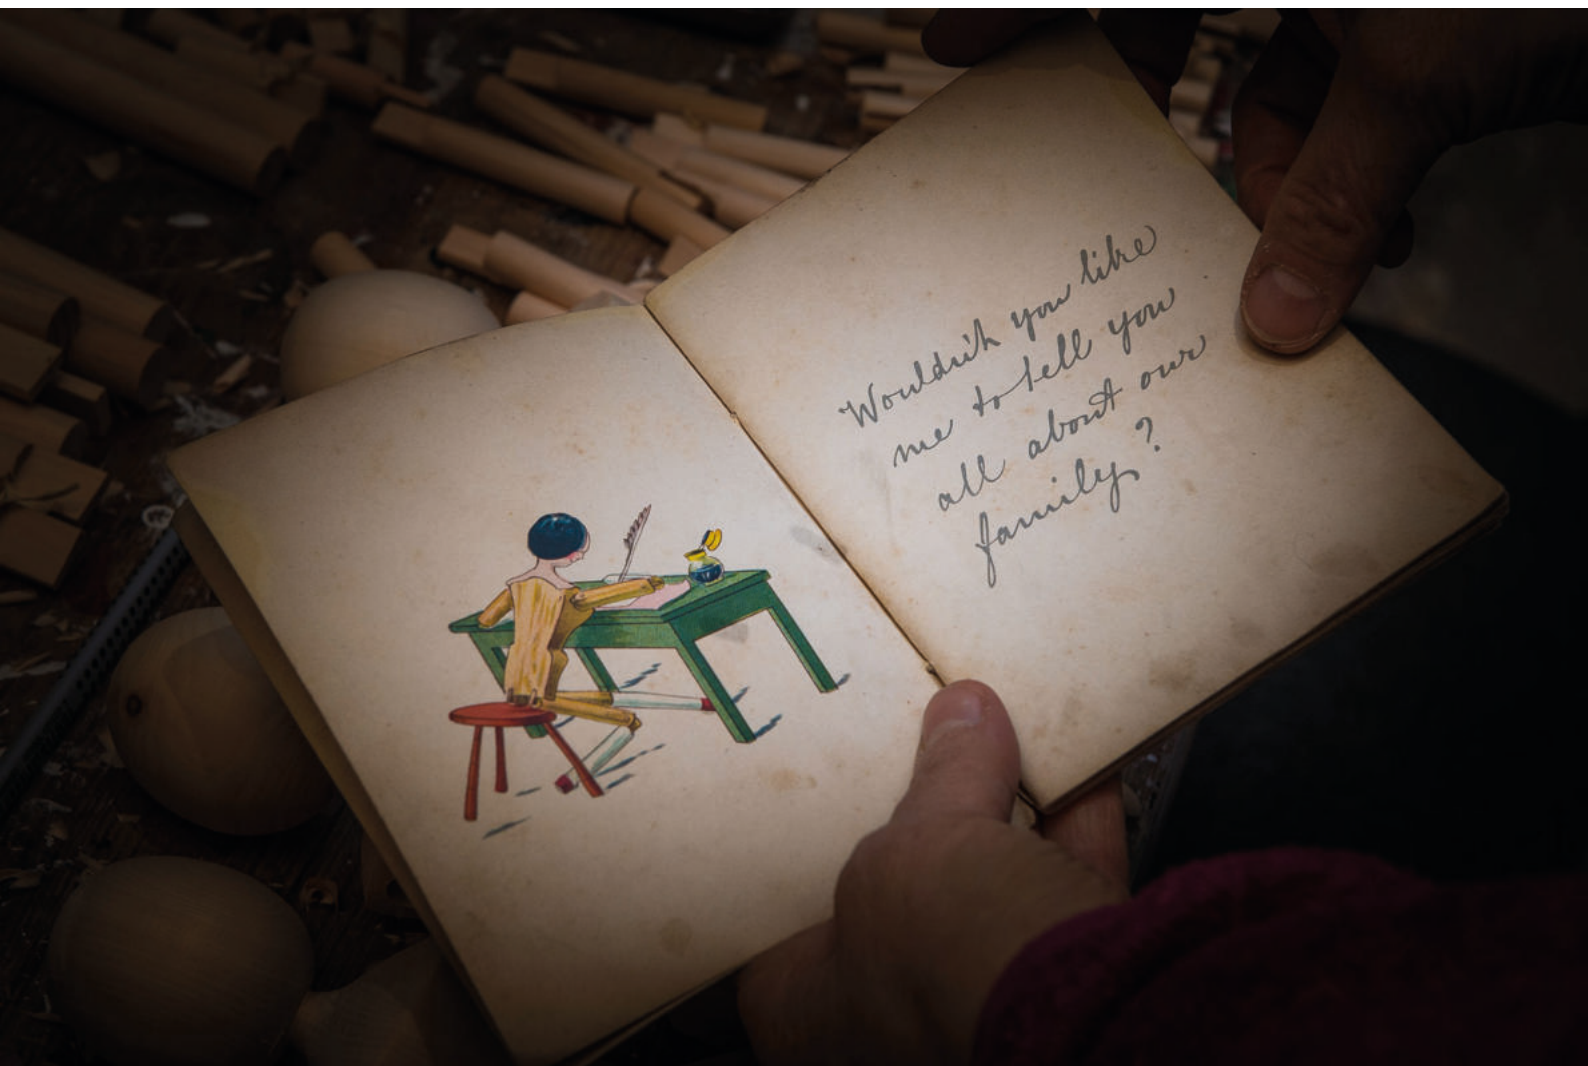 Wouldn't you like
me to tell you
all about our
family?